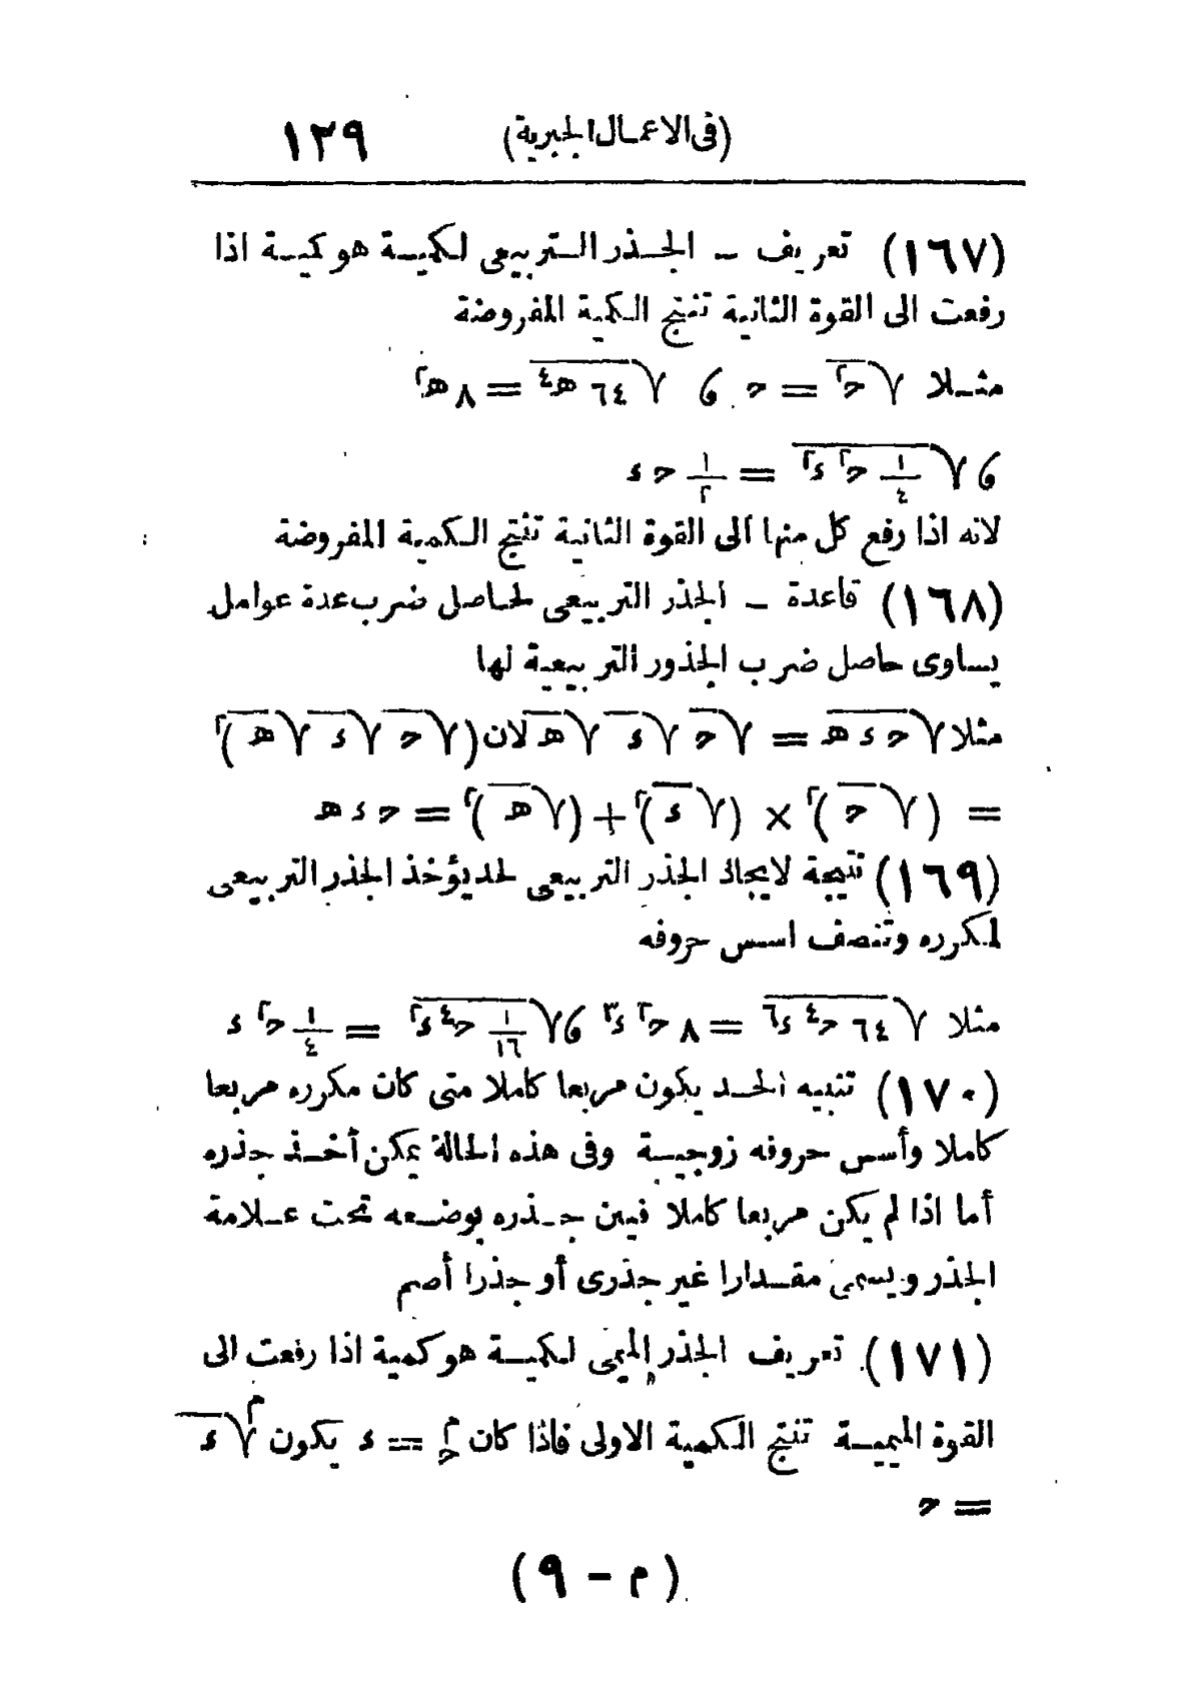 (فى الاعمال الجبرية) ١٢٩
(١٦٧) تعريف ــ الجذر التربيعى لكمية هو كمية اذا
رفعت الى القوة الثانية تنتج الكمية المفروضة
مثلا √ح٢ = ح و √٦٤ ه٤ = ٨ ه٢
و √١/٤ ح٢ ء٢ = ١/٢ ح ء
لانه اذا رفع كل منها الى القوة الثانية تنتج الكمية المفروضة
(١٦٨) قاعدة ــ الجذر التربيعى لحاصل ضرب عدة عوامل
يساوى حاصل ضرب الجذور التربيعية لها
مثلا √ح ء ه = √ح √ء √ه لان (√ح √ء √ه)٢
= (√ح)٢ × (√ء)٢ + (√ه)٢ = ح ء ه
(١٦٩) نتيجة لايجاد الجذر التربيعى لحد يؤخذ الجذر التربيعى
لمكرره وتنصف اسس حروفه
مثلا √٦٤ ح٤ ء٦ = ٨ ح٢ ء٣ و √١/١٦ ح٤ ء٢ = ١/٤ ح٢ ء
(١٧٠) تنبيه الحد يكون مربعا كاملا متى كان مكرره مربعا
كاملا وأسس حروفه زوجية وفى هذه الحالة يمكن أخذ جذره
أما اذا لم يكن مربعا كاملا فيبن جذره بوضعه تحت علامة
الجذر ويسمى مقدارا غير جذرى أو جذرا أصم
(١٧١) تعريف الجذر الميمى لكمية هو كمية اذا رفعت الى
القوة الميمية تنتج الكمية الاولى فاذا كان حم = ء يكون م√ء
= ح
(م - ٩)